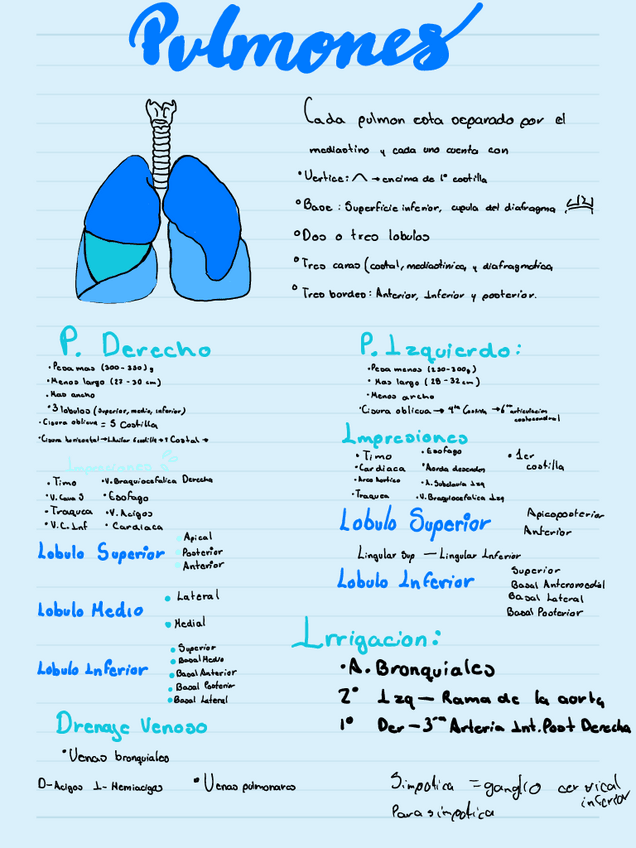 Pulmones
Cada pulmon esta separado por el
mediastino y cada uno cuenta con
• Vertice: ^ → encima de 1° costilla
• Base: Superficie inferior, cupula del diafragma
• Dos o tres lobulos
• Tres caras (costal, mediastinica y diafragmatica
• Tres bordes: Anterior, Inferior y posterior.
P. Derecho
• Pesa mas (300-330)g
• Menos largo (27-30 cm)
• Mas ancho
• 3 lobulos (superior, medio, inferior)
• Cisura oblicua = 5 Costilla
• Cisura horizontal → 4 Costal →
Impresiones
• Timo • V. Braquiocefalica Derecha
• V. Cava S • Esofago
• Traquea • V. Acigos
• V.C. Inf • Cardiaca
Lobulo Superior
• Apical
• Posterior
• Anterior
Lobulo Medio
• Lateral
• Medial
Lobulo Inferior
• Superior
• Basal Medio
• Basal Anterior
• Basal Posterior
• Basal Lateral
Drenaje Venoso
• Venas bronquiales
D-Acigos I-Hemiacigos • Venas pulmonares
P. Izquierdo:
• Pesa menos (230-300g)
• Mas largo (28-32cm)
• Menos ancho
• Cisura oblicua → 4ta Costilla → 6ta articulacion
costocondral
Impresiones
• Timo • Esofago • 1er
• Cardiaca • Aorda descendes costilla
• Arco Aortico • A. Subclavia Izq
• Traquea • V. Braquiocefalica Izq
Lobulo Superior
Apicoposterior
Anterior
Lingular Sup — Lingular Inferior
Lobulo Inferior
Superior
Basal Anteromedial
Basal Lateral
Basal Posterior
Irrigacion:
• A. Bronquiales
2° Izq — Rama de la aorta
1° Der — 3ra Arteria Int. Post Derecha
Simpatica = ganglio cervical
inferior
Parasimpatica